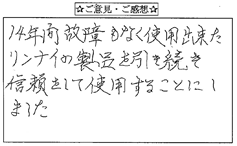 ☆ご意見・ご感想☆
14年間故障もなく使用出来た
リンナイの製品を引き続き
信頼をして使用することにし
ました